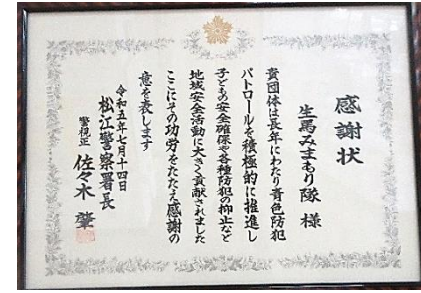 感謝状
生馬みまもり隊 様
貴団体は長年にわたり青色防犯
パトロールを積極的に推進し
子どもの安全確保や各種防犯の抑止など
地域安全活動に大きく貢献されました
ここにその功労をたたえ感謝の
意を表します
令和五年七月十四日
松江警察署長
警視正 佐々木 肇